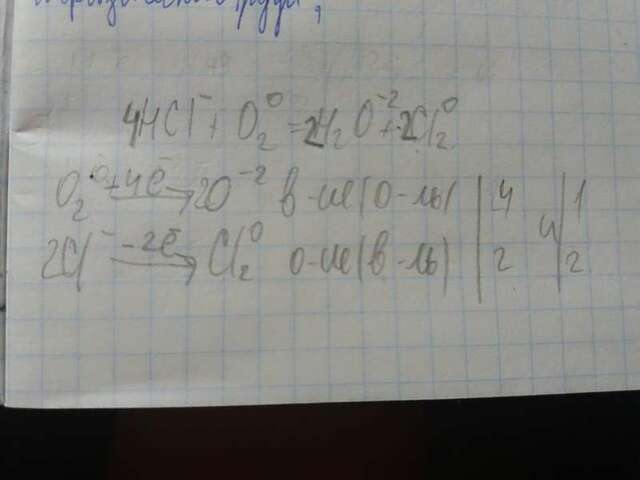 4HCl⁻ + O₂⁰ = 2H₂O⁻² + 2Cl₂⁰
O₂⁰ +4ē → 2O⁻² в-ие (о-ль) | 4 | 4 | 1
2Cl⁻ -2ē → Cl₂⁰ о-ие (в-ль) | 2 | 2